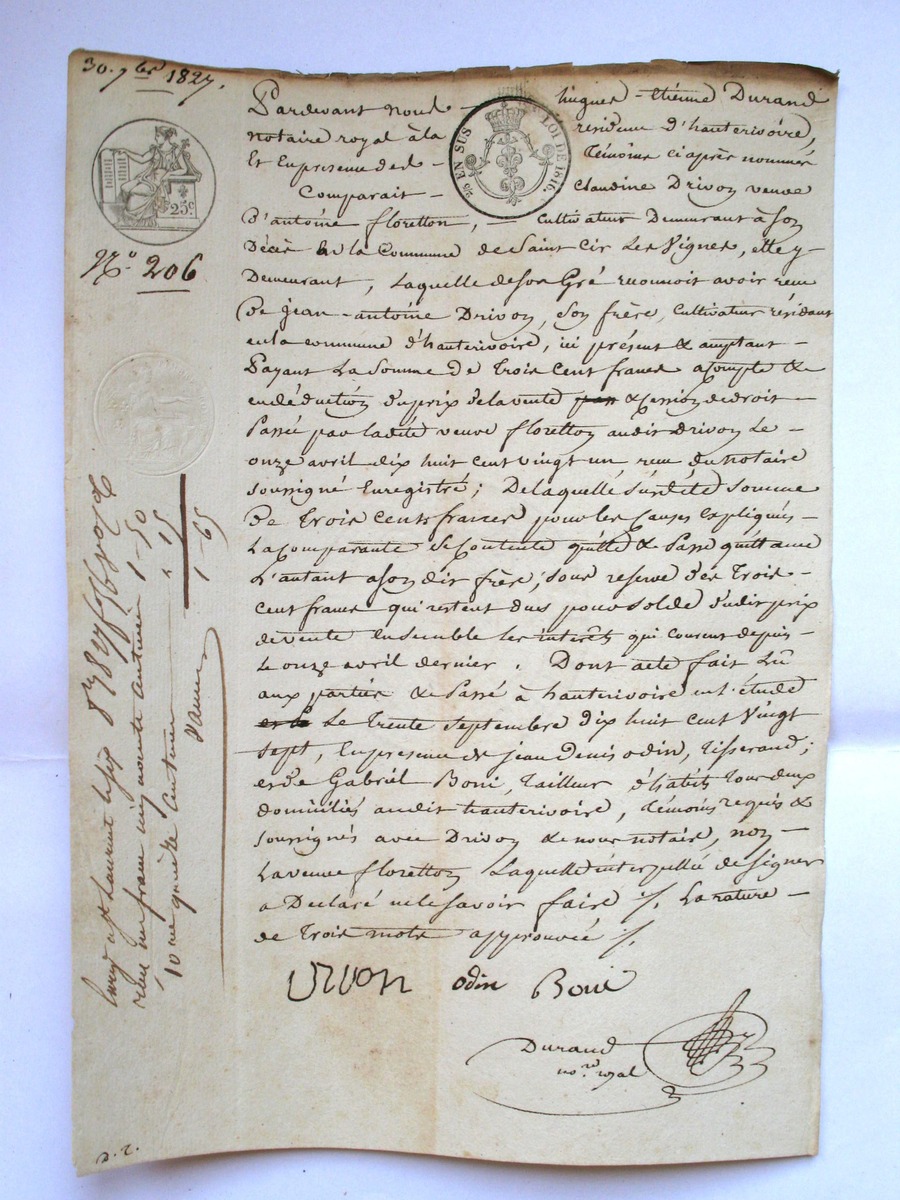 30. 7bre 1827.
25c
No 206
2/5 EN SUS LOI DE 1816.
Pardevant Nous hugues - étienne Durand
notaire royal à la résidence d'hauterivoire,
Et En presence des témoins ci après nommés
Comparait - Claudine Drivon veuve
d'antoine floretton, - cultivateur Demeurant à son
Décès en la Commune de Saint Cir Les Vignes, elle y
Demeurant, Laquelle de son Gré reconnoit avoir reçu
De jean - antoine Drivon, son frère, Cultivateur résidant
en la commune d'hauterivoire, ici présent & acceptant -
Payant La Somme De Trois Cent francs acompte &
en déduction du prix de la vente & Cession de droit -
Passée par ladite veuve floretton audit Drivon Le -
onze avril dix huit cent vingt un reçu du notaire
soussigné Enregistré ; De laquelle susdite somme
De trois Cents francs pour les Causes Expliqués -
La Comparante se Contente quitte & Passe quittance
D'autant a son dit frère ; sous reserve des trois -
Cent francs qui restent dus pour solde dudit prix
de vente Ensemble les intérêts qui courent depuis -
Le onze avril dernier. Dont acte fait Lû
aux parties & Passé à hauterivoire en l'étude
Le trente septembre dix huit cent vingt
sept, En presence de jean Denis odin, tisserand ;
et de Gabriel Boni, tailleur d'habits tous deux
domiciliés audit hauterivoire, témoins requis &
soussignés avec Drivon & nous notaire, non -
La veuve floretton Laquelle interpellée de signer
a Déclaré ne le savoir faire ./. La rature -
de trois mots approuvée ./.
Drivon odin Boni
Durand
nore royal
1-50
" 15
1-65
reçu un franc cinquante centimes
10me quinze Centimes